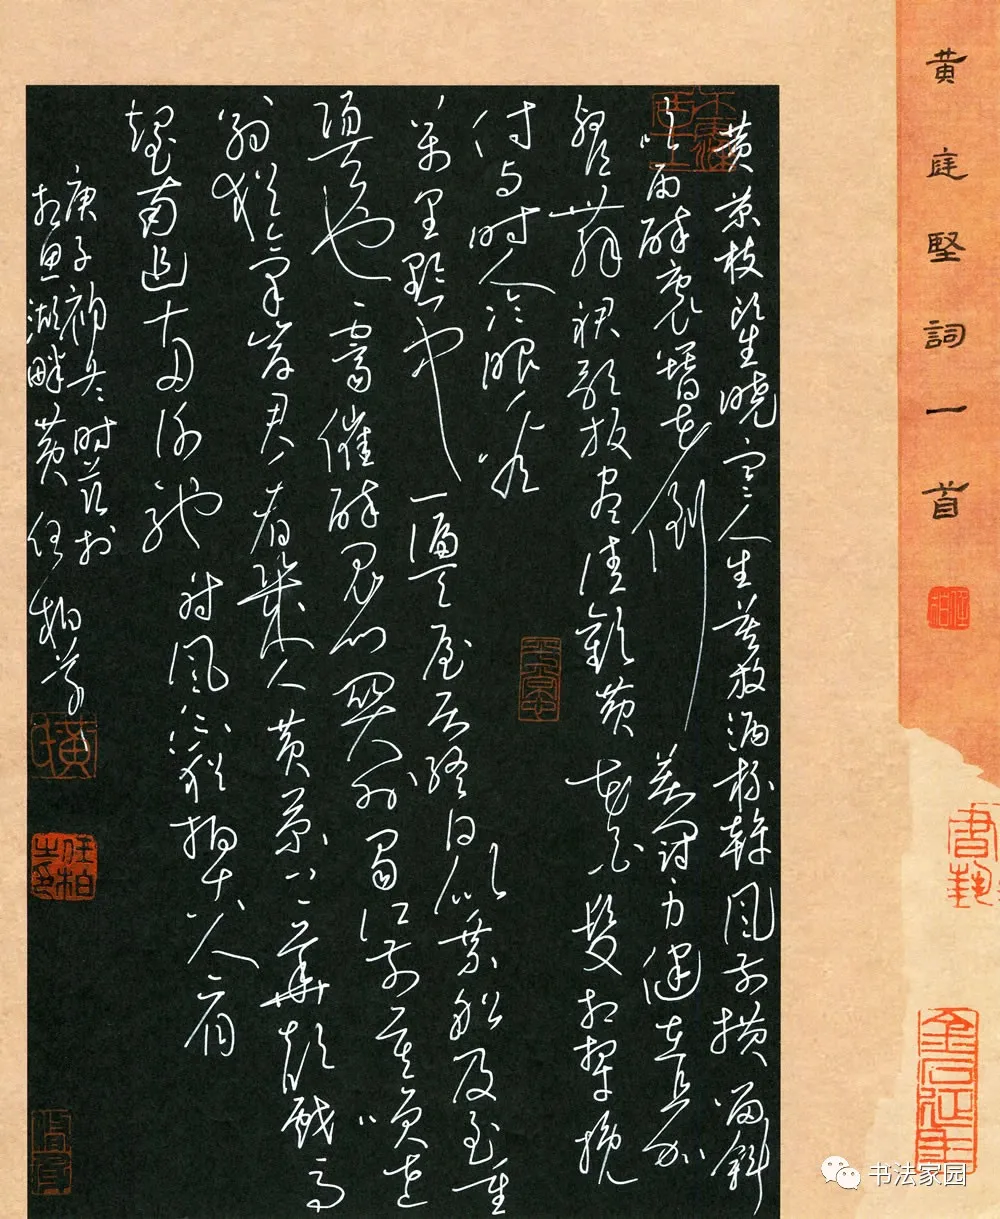 黄庭堅詞一首
黄菊枝頭生曉寒人生莫放酒杯幹風前橫笛斜
吹雨醉裏簪花倒著冠身健在且加
餐舞裙歌板盡清歡黄花白髮相牽挽
付與時人冷眼看
萬里黔中一漏天屋居終日似乘船及至重
陽天也霽催醉鬼門關外蜀江前莫笑老
翁猶氣岸君看幾人黄菊上華顛戲馬
臺南追兩謝馳
射風流猶拍古人肩
庚子初冬時節於
相思湖畔黄任柏草
黄
任柏之印
任柏
金石延年
书法家园